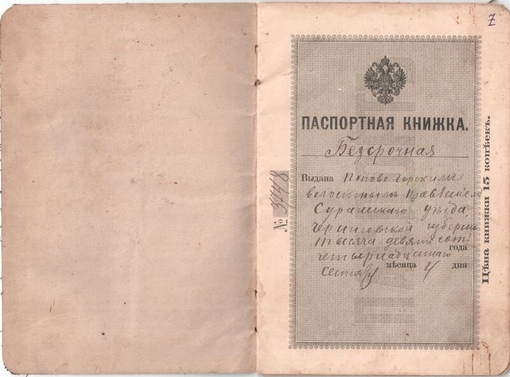 7
ПАСПОРТНАЯ КНИЖКА.
Безсрочная
Выдана Поповогорскимъ
волостнымъ Правленіем
Суражскаго уѣзда
Черниговской губерніи
тысяча девятьсотъ
года
четырнадцатаго
мѣсяца 4 дня
№
Цѣна книжки 15 копѣекъ.